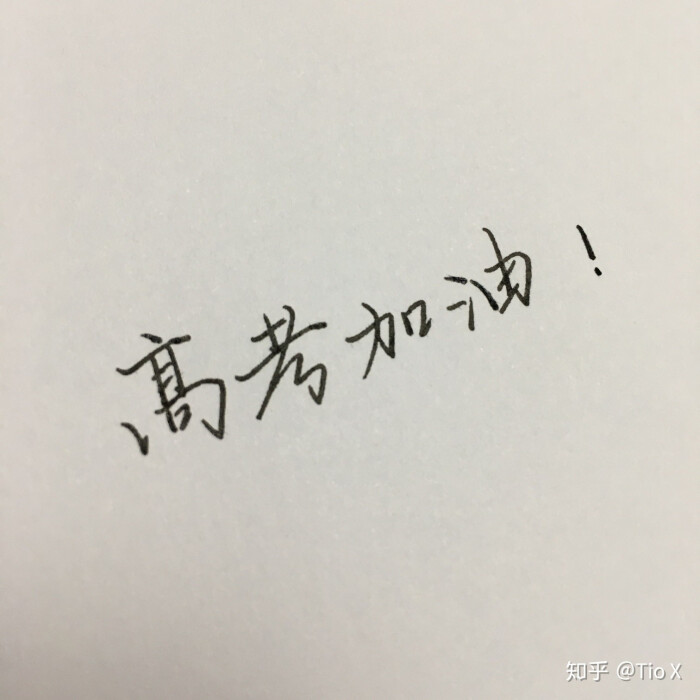 髙考加油！
知乎 @Tio X